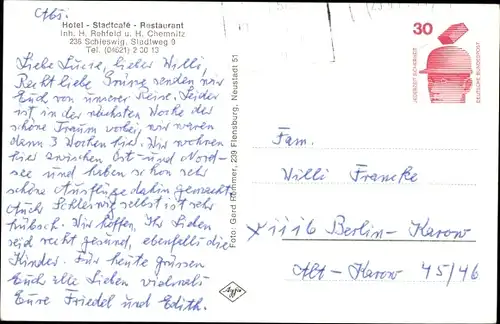 Abs.
Hotel - Stadtcafé - Restaurant
Inh. H. Rehfeld u. H. Chemnitz
236 Schleswig, Stadtweg 9
Tel. (04621) 2 30 13
Liebe Lucie, lieber Willi,
Recht liebe Grüße senden wir
Euch von unserer Reise. Leider
ist in der nächsten Woche der
schöne Traum vorbei, wir waren
dann 3 Wochen hier. Wir wohnen
hier zwischen Ost- und Nord-
see und haben schon sehr
schöne Ausflüge dahin gemacht.
Auch Schleswig selbst ist sehr
hübsch. Wir hoffen, Ihr Lieben
seid recht gesund, ebenfalls die
Kinder. Für heute grüssen
Euch alle Lieben vielmals
Eure Friedel und Edith.
Foto: Gerd Remmer, 239 Flensburg, Neustadt 51
Agfa
30
JEDERZEIT SICHERHEIT
DEUTSCHE BUNDESPOST
Fam.
Willi Francke
Berlin-Karow
Alt-Karow 45/46